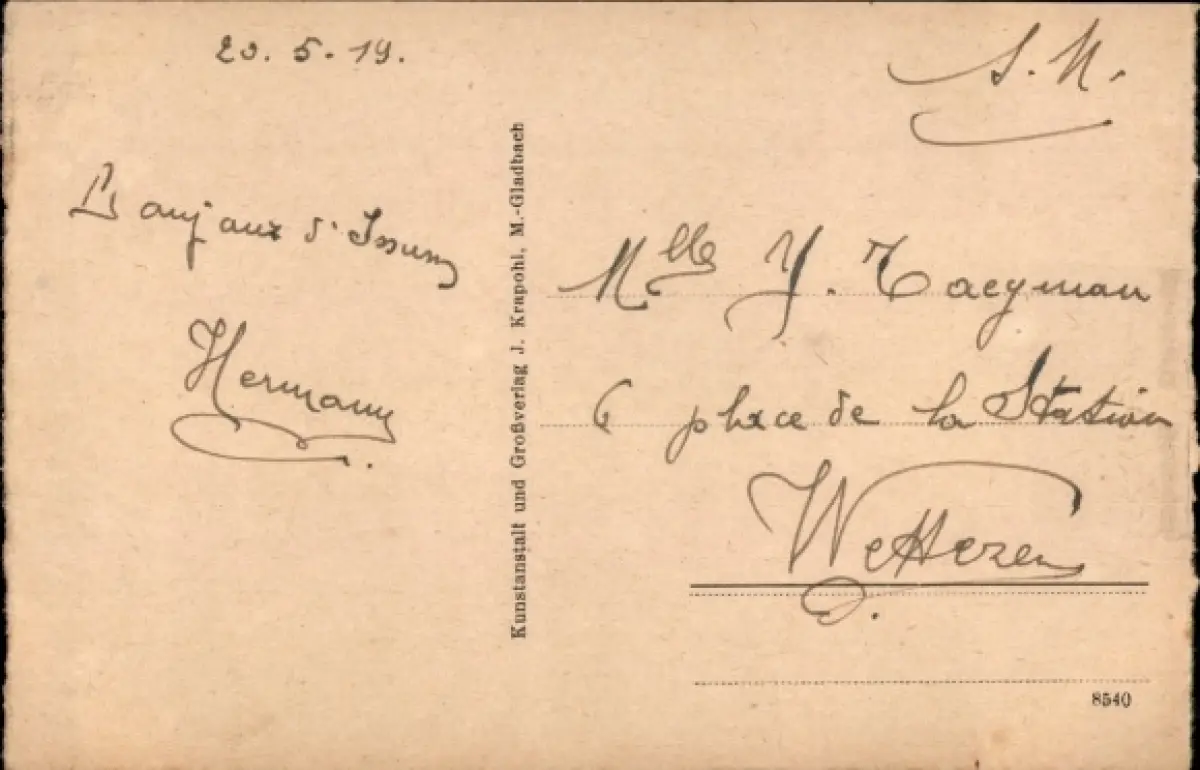 20. 5. 19.
d'Issum
Hermann
Kunstanstalt und Großverlag J. Krapohl, M.-Gladbach
S. M.
Mlle Y. Taeyman
6 place de la Station
Wetteren
8540